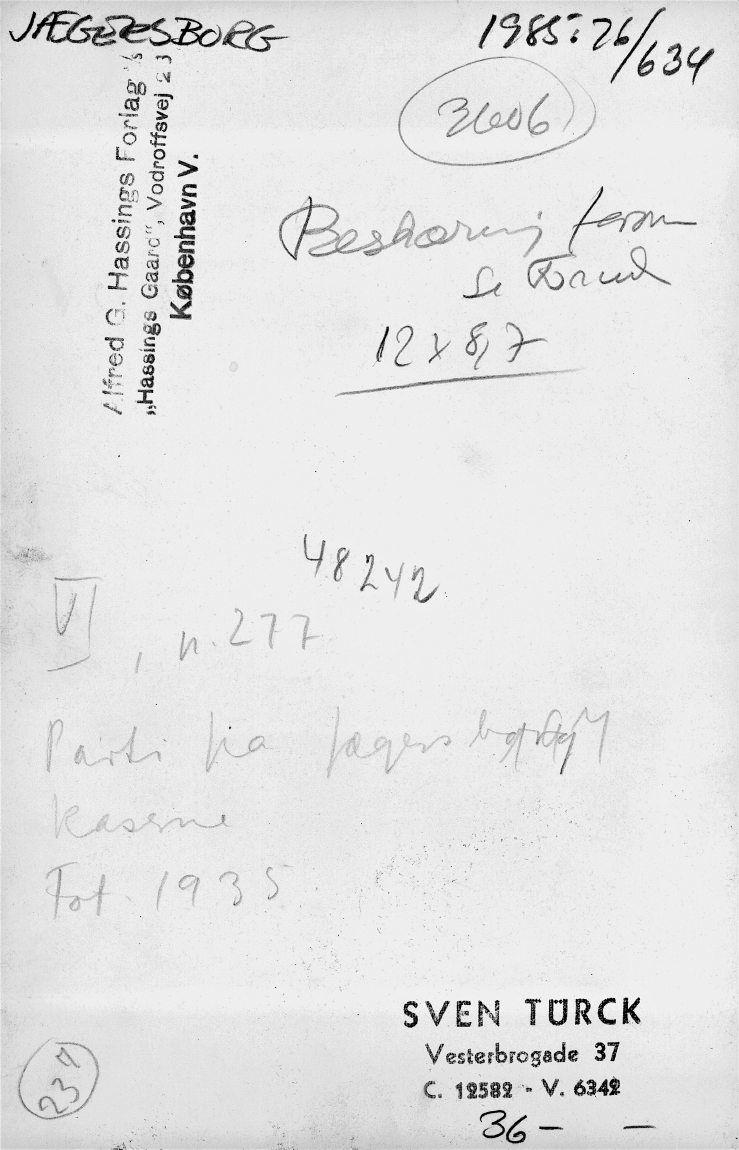 JÆGERSBORG
1985:26/634
3606
Alfred G. Hassings Forlag A/S
„Hassings Gaard“, Vodroffsvej 23
København V.
Beskæring
12 x 8,7
48242
VI, n. 277
Parti fra Jægersborg
Kaserne
Fot. 1935
SVEN TÜRCK
Vesterbrogade 37
C. 12582 - V. 6342
36 — —
237